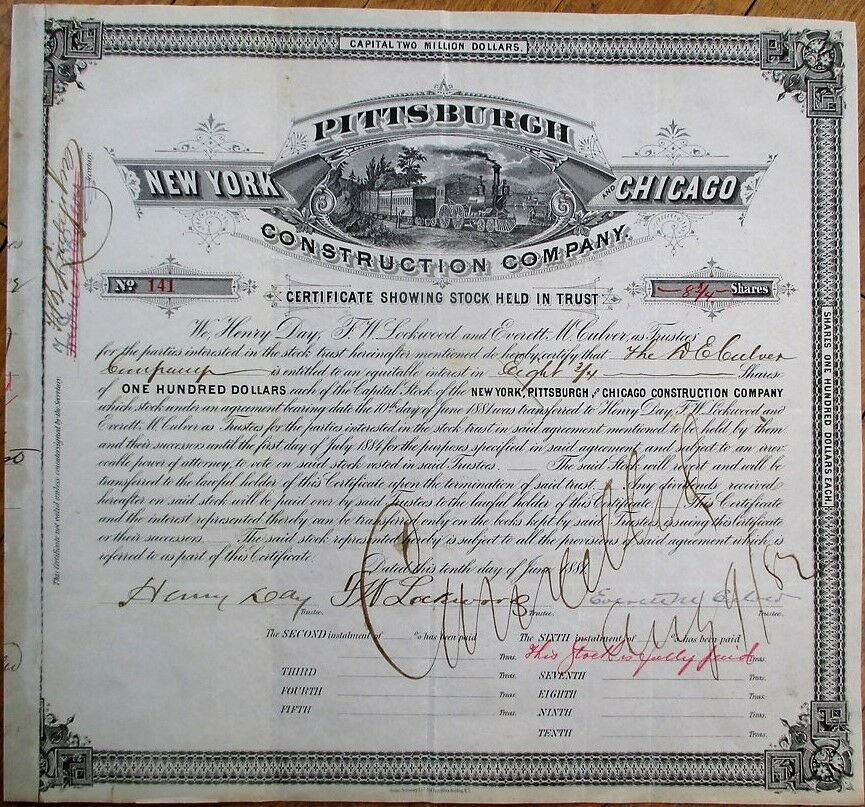 CAPITAL TWO MILLION DOLLARS.
PITTSBURGH
NEW YORK AND CHICAGO
CONSTRUCTION COMPANY.
No 141
8 3/4 Shares
CERTIFICATE SHOWING STOCK HELD IN TRUST
We, Henry Day, F. W. Lockwood and Everett M. Culver, as Trustees
for the parties interested in the stock trust hereinafter mentioned do hereby certify that The D E Culver
Company is entitled to an equitable interest in Eight 3/4 Shares
of ONE HUNDRED DOLLARS each of the Capital Stock of the NEW YORK, PITTSBURGH AND CHICAGO CONSTRUCTION COMPANY
which stock under an agreement bearing date the 10th day of June 1881 was transferred to Henry Day, F. W. Lockwood and
Everett M. Culver as Trustees for the parties interested in the stock trust in said agreement mentioned to be held by them
and their successors until the first day of July 1884 for the purposes specified in said agreement and subject to an irrev-
ocable power of attorney, to vote on said stock vested in said Trustees. The said Stock will revert and will be
transferred to the lawful holder of this Certificate upon the termination of said trust. Any dividends received
hereafter on said stock will be paid over by said Trustees to the lawful holder of this Certificate. This Certificate
and the interest represented thereby can be transferred only on the books kept by said Trustees issuing this Certificate
or their successors. The said stock represented hereby is subject to all the provisions of said agreement which is
referred to as part of this Certificate.
Dated this tenth day of June 1881
Henry Day F W Lockwood Everett M Culver
Trustee. Trustee. Trustee.
Cancelled
Aug 9/82
The SECOND instalment of % has been paid The SIXTH instalment of % has been paid
Treas. This Stock is fully paid Treas.
THIRD Treas. SEVENTH Treas.
FOURTH Treas. EIGHTH Treas.
FIFTH Treas. NINTH Treas.
TENTH Treas.
SHARES ONE HUNDRED DOLLARS EACH.
Secretary.
This Certificate not valid unless countersigned by the Secretary.